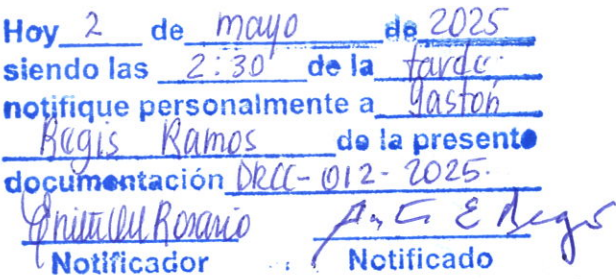 Hoy 2 de mayo de 2025
siendo las 2:30 de la tarde
notifique personalmente a Gastón
Regis Ramos de la presente
documentación DRCC-012-2025.
Rosario
Notificador Notificado